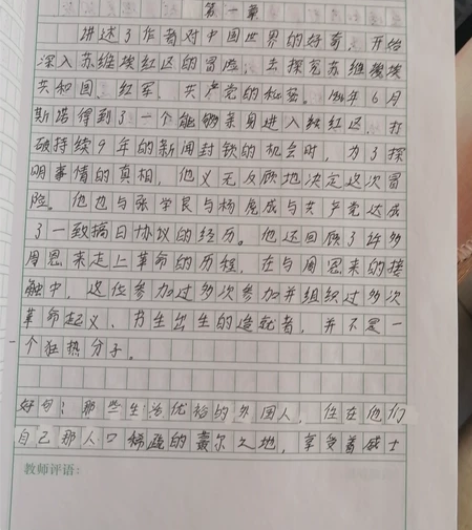 第一章
讲述了作者对中国世界的好奇，开始
深入苏维埃红区的冒险，去探究苏维埃
共和国、红军、共产党的秘密。1936年6月
斯诺得到了一个能够亲身进入红区，打
破持续9年的新闻封锁的机会时，为了探
明事情的真相，他义无反顾地决定这次冒
险。他也与张学良与杨虎成与共产党达成
了一致搞日协议的经历。他还回顾了许多
周恩来走上革命的历程，在与周恩来的接
触中，这位参加过多次参加并组织过多次
革命起义、书生出生的造就者，并不是一
个狂热分子。
好句：那些生活优裕的外国人，住在他们
自己那人口稀疏的塞尔之地，享受着威士
教师评语：